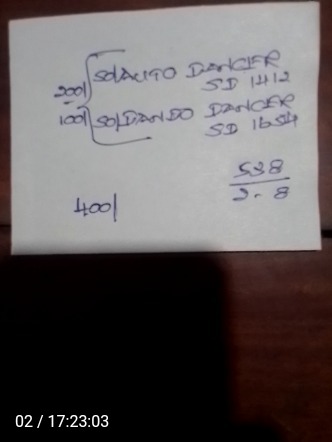 200/ 50/AUTO DANCER
SD 1412
100/ 50/DANDO DANCER
SD 1654
538
2-8
400/
02 / 17:23:03